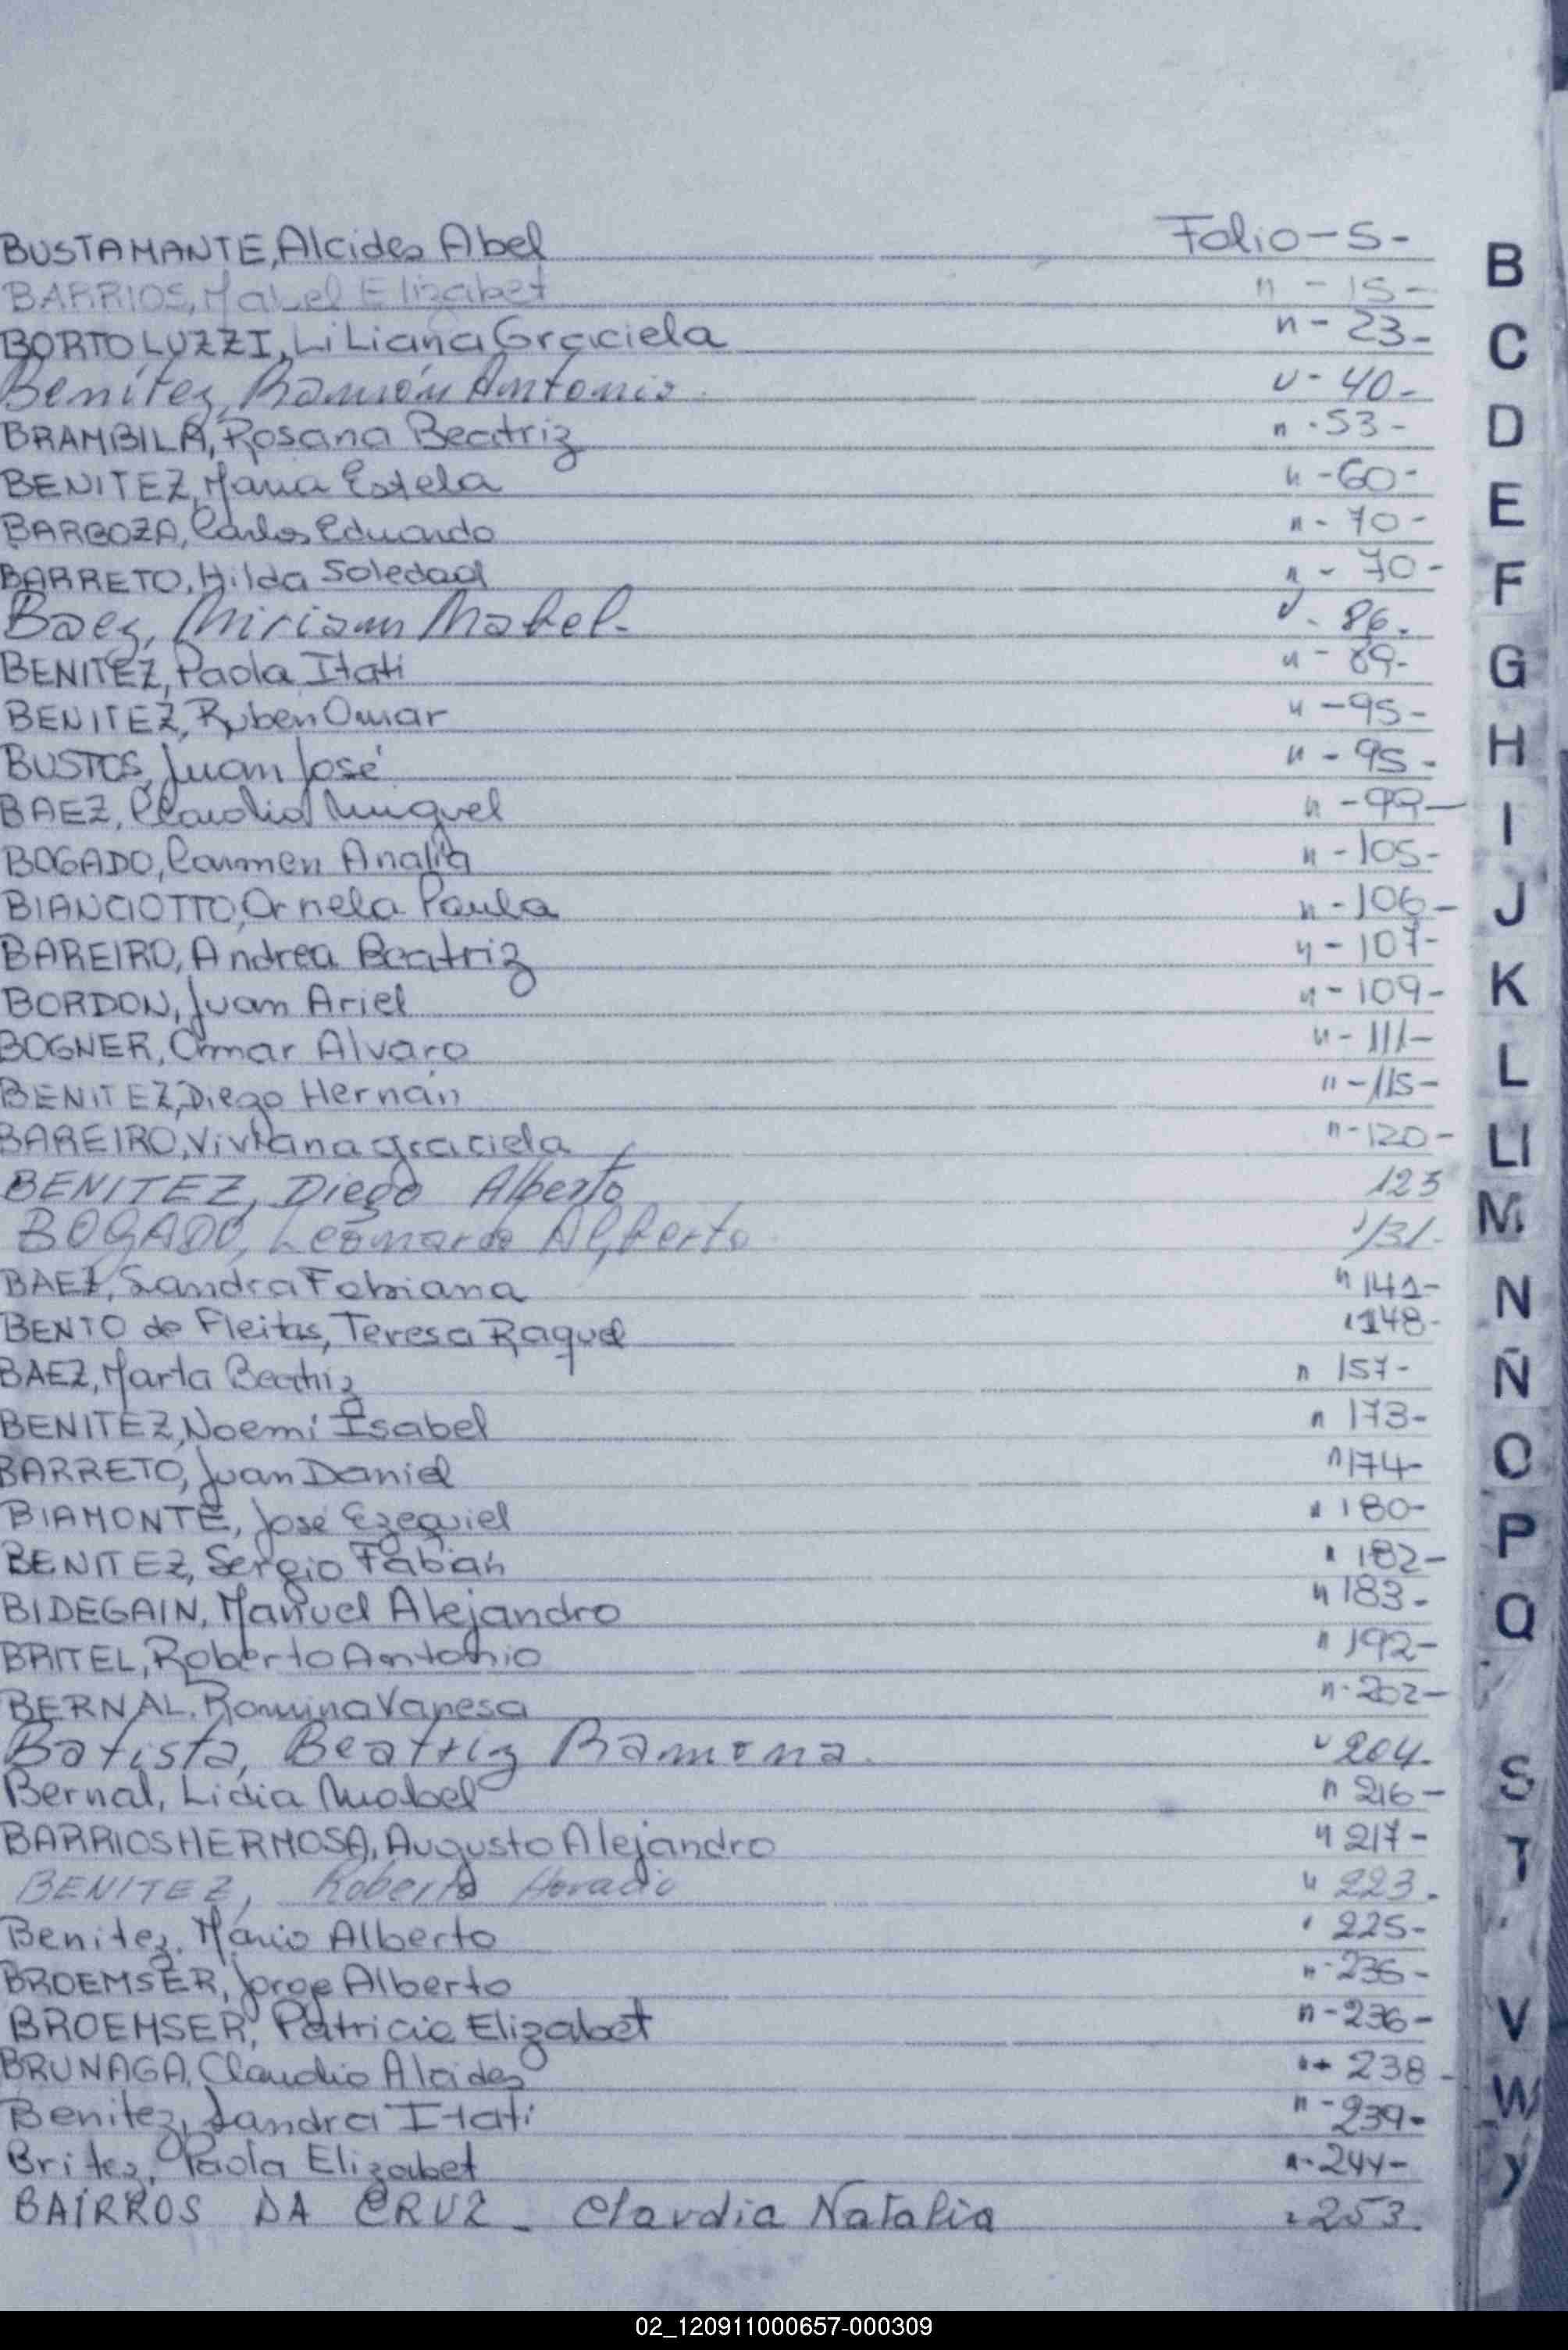 BUSTAMANTE, Alcides Abel Folio-5-
BARRIOS, Mabel Elizabet " - 15-
BORTOLUZZI, Liliana Graciela " - 23-
Benítez, Ramón Antonio. " - 40-
BRAMBILA, Rosana Beatriz " - 53-
BENITEZ, Maria Estela " - 60-
BARBOZA, Carlos Eduardo " - 70-
BARRETO, Hilda Soledad " - 70-
Baez, Miriam Mabel. " - 86.
BENITEZ, Paola Itati " - 89-
BENITEZ, Ruben Omar " - 95-
BUSTOS, Juan José " - 95-
BAEZ, Claudio Miguel " - 99-
BOGADO, Carmen Analia " - 105-
BIANCIOTTO, Ornela Paula " - 106-
BAREIRO, Andrea Beatriz " - 107-
BORDON, Juan Ariel " - 109-
BOGNER, Omar Alvaro " - 111-
BENITEZ, Diego Hernán " - 115-
BAREIRO, Viviana Graciela " - 120-
BENITEZ, Diego Alberto 123
BOGADO, Leonardo Alberto " 131.
BAEZ, Sandra Fabiana " 141-
BENTO de Fleitas, Teresa Raquel " 148-
BAEZ, Marta Beatriz " 157-
BENITEZ, Noemí Isabel " 173-
BARRETO, Juan Daniel " 174-
BIAMONTE, José Ezequiel " 180-
BENITEZ, Sergio Fabián " 182-
BIDEGAIN, Manuel Alejandro " 183-
BRITEL, Roberto Antonio " 192-
BERNAL, Romina Vanesa " - 202-
Batista, Beatriz Ramona. " 204.
Bernal, Lidia Mabel " 216-
BARRIOS HERMOSA, Augusto Alejandro " 217-
BENITEZ, Roberto Horacio " 223.
Benitez, Mario Alberto " 225-
BROEMSER, Jorge Alberto " - 236-
BROEMSER, Patricia Elizabet " - 236-
BRUNAGA, Claudio Alcides " - 238-
Benitez, Sandra Itati " - 239-
Britez, Paola Elizabet " - 244-
BAIRROS DA CRUZ - Claudia Natalia " 253.
B
C
D
E
F
G
H
I
J
K
L
Ll
M
N
Ñ
O
P
Q
S
T
V
W
Y
02_120911000657-000309